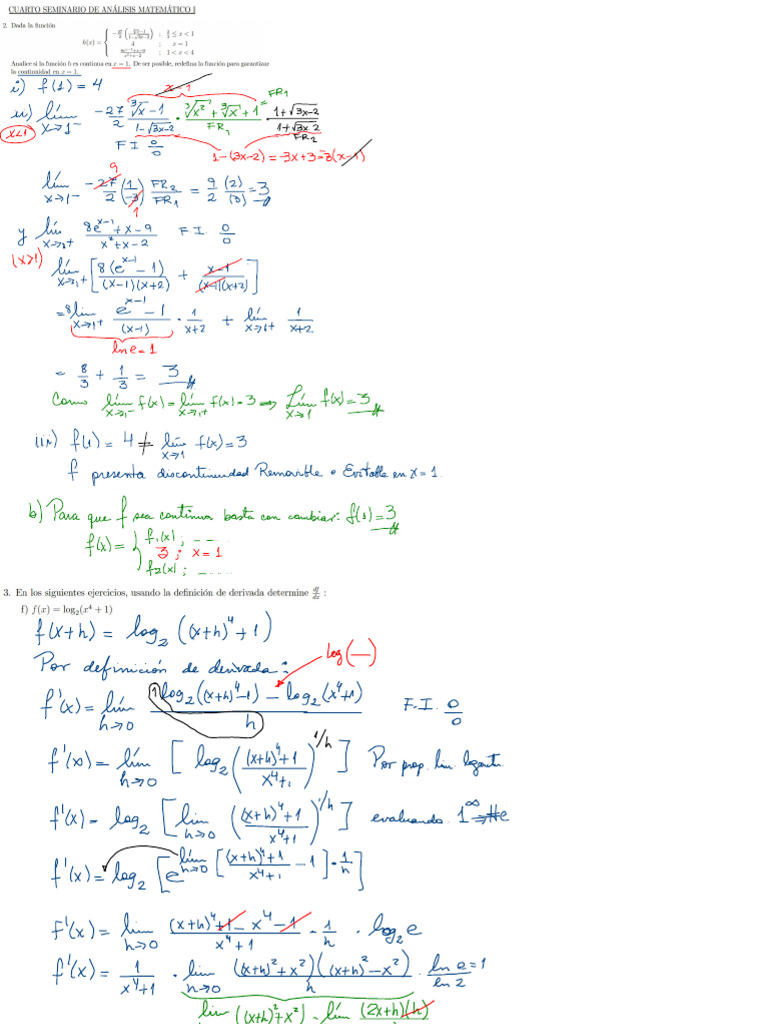 CUARTO SEMINARIO DE ANÁLISIS MATEMÁTICO I
2. Dada la función
h(x) = { -27/2 (∛x-1 / 1-√3x-2) ; 2/3 ≤ x < 1
4 ; x = 1
8e^(x-1)+x-9 / x²+x-2 ; 1 < x < 4
Analice si la función h es continua en x = 1. De ser posible, redefina la función para garantizar
la continuidad en x = 1.
i) f(1) = 4
x-1
ii) lím x→1⁻ -27/2 (∛x-1 / 1-√3x-2) · (∛x² + ∛x + 1 / FR₁) · (1+√3x-2 / 1+√3x-2) = FR₁
x<1
FR₂
F I 0/0
1-(3x-2) = -3x+3 = -3(x-1)
9
lím x→1⁻ -27/2 (1/-3) FR₂/FR₁ = 9/2 (2)/(3) = 3
1
y lím x→1⁺ 8e^(x-1)+x-9 / x²+x-2 F I. 0/0
(x>1)
lím x→1⁺ [ 8(e^(x-1) - 1) / (x-1)(x+2) + x-1 / (x-1)(x+2) ]
= 8 lím x→1⁺ e^(x-1) - 1 / (x-1) · 1/x+2 + lím x→1⁺ 1/x+2
ln e = 1
= 8/3 + 1/3 = 3
Como lím x→1⁻ f(x) = lím x→1⁺ f(x) = 3 ⇒ Lím x→1 f(x) = 3
iii) f(1) = 4 ≠ lím x→1 f(x) = 3
f presenta discontinuidad Removible o Evitable en x = 1.
b) Para que f sea continua basta con cambiar: f(1) = 3
f(x) = { f₁(x) ; .....
3 ; x = 1
f₂(x) ; .....
3. En los siguientes ejercicios, usando la definición de derivada determine df/dx :
f) f(x) = log₂(x⁴ + 1)
f(x+h) = log₂ ((x+h)⁴ + 1)
log(—)
Por definición de derivada:
f'(x) = lím h→0 1 log₂((x+h)⁴-1) - log₂(x⁴+1) / h F.I. 0/0
f'(x) = lím h→0 [ log₂ ((x+h)⁴+1 / x⁴+1)^(1/h) ] Por prop. lim. logarit.
f'(x) = log₂ [ lím h→0 ((x+h)⁴+1 / x⁴+1)^(1/h) ] evaluando 1^∞ → #e
f'(x) = log₂ [ e^(lím h→0 [(x+h)⁴+1 / x⁴+1 - 1] · 1/h) ]
f'(x) = lím h→0 (x+h)⁴+1-x⁴-1 / x⁴+1 · 1/h · log₂e
f'(x) = 1/x⁴+1 · lím h→0 ((x+h)²+x²)((x+h)²-x²) / h · ln e = 1 / ln 2
lím ((x+h)²+x²) · lím (2x+h)(h)